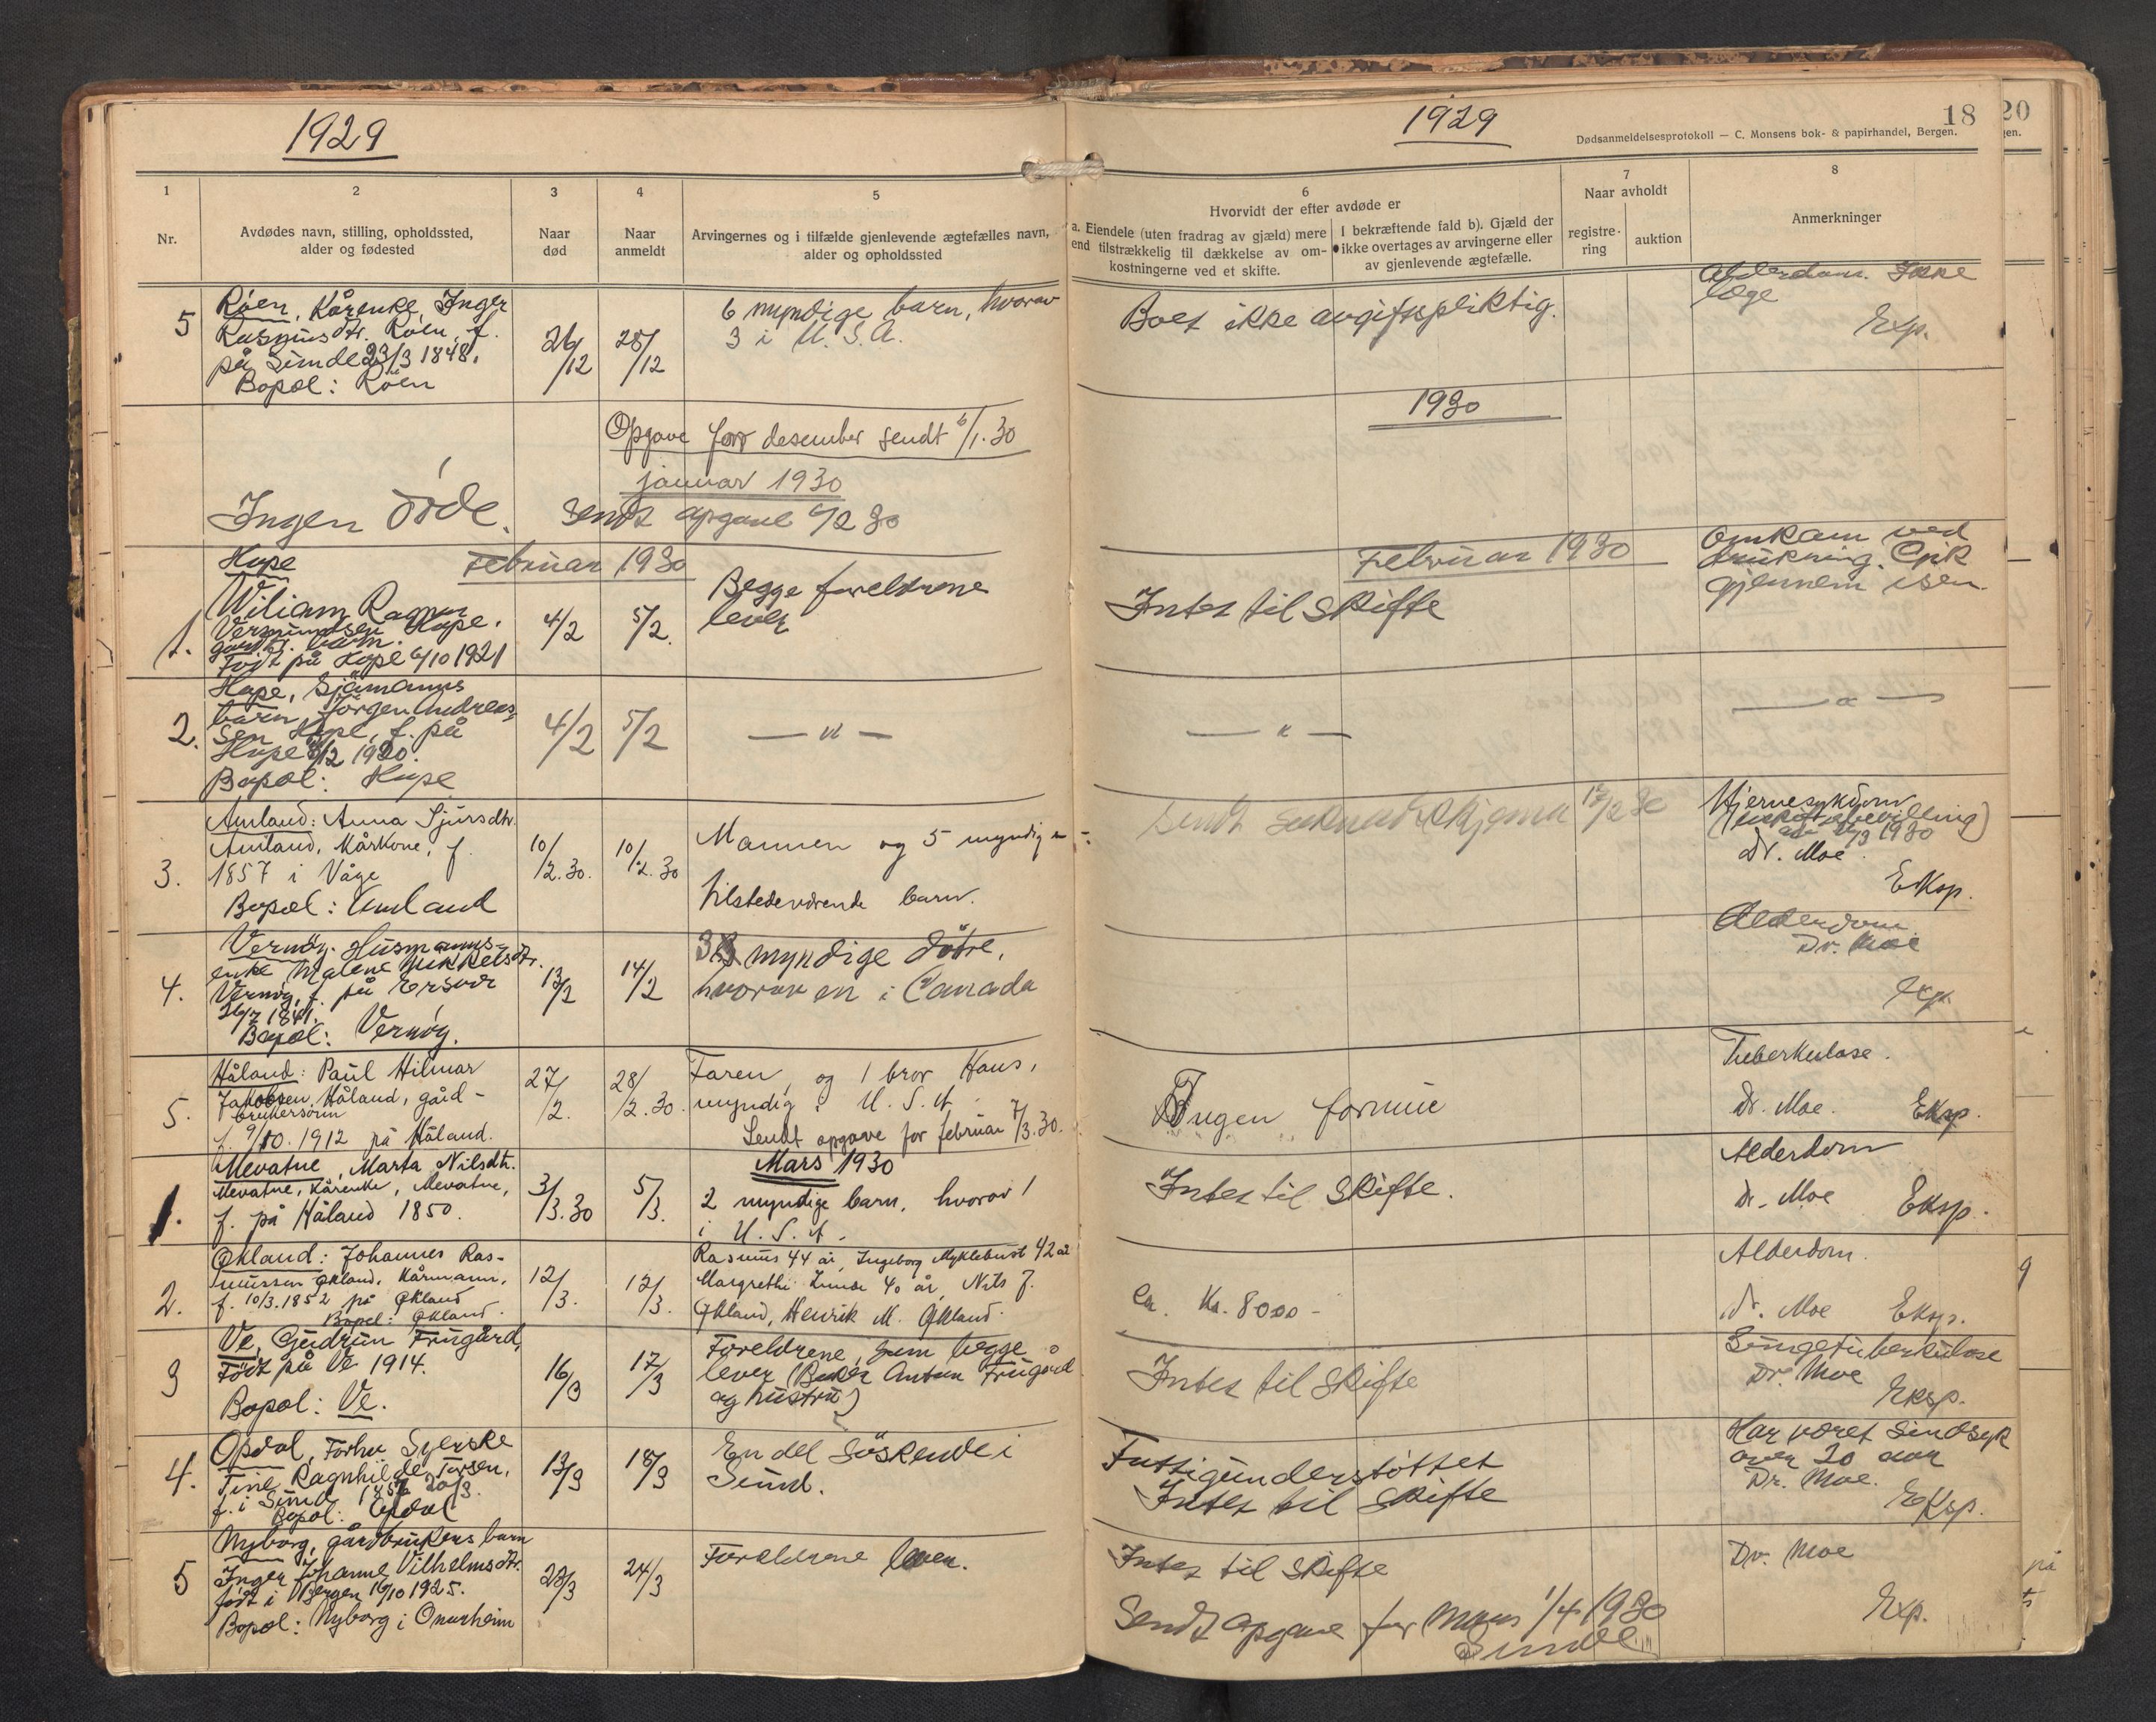 1929
1929
18
20
Dødsanmeldelsesprotokoll — C. Monsens bok- & papirhandel, Bergen.
gen.
1
Nr.
2
Avdødes navn, stilling, opholdssted,
alder og fødested
3
Naar
død
4
Naar
anmeldt
5
Arvingernes og i tilfælde gjenlevende ægtefælles navn,
alder og opholdssted
6
Hvorvidt der efter avdøde er
a. Eiendele (uten fradrag av gjæld) mere
end tilstrækkelig til dækkelse av om-
kostningerne ved et skifte.
I bekræftende fald b). Gjæld der
ikke overtages av arvingerne eller
av gjenlevende ægtefælle.
7
Naar avholdt
registre-
ring
auktion
8
Anmerkninger
5
Røen, Kårenke, Inger
Rasmusdtr. Røen, f.
på Sunde 23/3 1848.
Bopæl: Røen
26/12
28/12
6 myndige barn, hvorav
3 i U.S.A.
Boet ikke avgiftspliktig.
Alderdom. Ikke
læge
Exp.
Opgave for desember sendt 6/1.30
1930
januar 1930
Ingen døde. Sendt opgave 6/2 30
Februar 1930
Februar 1930
1.
Hope
Wiliam Ragnar
Vermundsen Hope,
gardbr. barn.
Født på Hope 6/10 1921
4/2
5/2.
Begge foreldrene
lever
Intet til skifte
Omkom ved
drukning. Gik
gjennem isen.
2.
Hope, Sjømanns
barn, Jørgen Andreas-
sen Hope, f. på
Hope /12 1920.
Bopæl: Hope
4/2
5/2
— " —
— " —
— " —
3.
Amland: Anna Sjursdtr.
Amland, Kårkone, f.
1857 i Våge
Bopæl: Amland
10/2.30.
10/2.30
Mannen og 5 myndige
tilstedeværende barn.
Sendt skjema 17/2 30
Hjernesykdom
( bevilling)
av /3 1930
Dr. Moe
Eksp.
4.
Vernøy. Husmanns-
enke Malene Mikkelsdtr.
Vernøy, f. på Ersvær
26/7 1841.
Bopæl: Vernøy.
13/2
14/2
3 myndige døtre,
hvorav en i Canada
Alderdom
Dr. Moe
Exp.
5.
Håland: Paul Hilmar
Jakobsen Håland, gård-
brukersønn
f. 9/10. 1912 på Håland.
27/2.
28/2.30.
Faren, og 1 bror Hans,
myndig i U.S.A.
Sendt opgave for februar 7/3.30.
Ingen formue
Tuberkulose.
Dr. Moe. Eksp.
Mars 1930
1.
Mevatne, Marta Nilsdtr.
Mevatne, Kårenke, Mevatne,
f. på Håland 1850.
3/3.30
5/3.
2 myndige barn, hvorav 1
i U.S.A.
Intet til skifte.
Alderdom
Dr. Moe Eksp.
2.
Økland: Johannes Ras-
mussen Økland, Kårmann,
f. 10/3.1852 på Økland
Bopæl: Økland.
12/3.
12/3.
Rasmus 44 år, Ingeborg Myklebust 42 år
Margrethe Lunde 40 år, Nils J.
Økland, Henrik M. Økland.
ca. Kr. 8000 -
Alderdom.
Dr. Moe Eksp.
3
Ve, Gudrun Frugård,
Født på Ve 1914.
Bopæl: Ve.
16/3
17/3
Foreldrene, som begge
lever (Baker Anton Frugård
og hustru)
Intet til skifte
Lungetuberkulose
Dr. Moe
Eksp.
4.
Opdal, Forhv. Syerske
Tine Ragnhilde Torsen,
f. i Sund 1856 20/3.
Bopæl: Opdal
13/3
18/3
En del søskende i
Sund.
Fattigunderstøttet
Intet til skifte
Har været sindsyk
over 20 aar
Dr. Moe.
Eksp.
5
Nyborg, gårdbrukers barn
Inger Johanne Vilhelmsdtr.
født i Bergen 16/10 1925.
Bopæl: Nyborg i Onarheim
23/3
24/3
Foreldrene lever.
Intet til skifte
Dr. Moe
Exp.
Sendt opgave for Mars 1/4 1930
Sunde